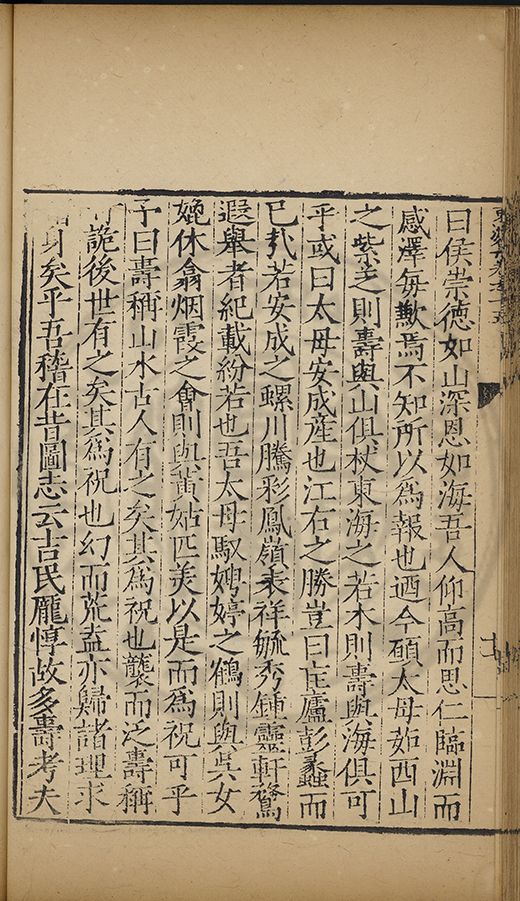 曰侯崇德如山深恩如海吾人仰高而思仁臨淵而
感澤每歉焉不知所以爲報也迺今碩太母茹西山
之紫芝則壽與山俱杖東海之若木則壽與海俱可
乎或曰太母安成産也江右之勝豈曰匡廬彭蠡而
已㢤若安成之螺川騰彩鳳嶺表祥毓秀鍾靈軒驁
遐舉者紀載紛若也吾太母馭娉婷之鶴則與吳女
媲休翕烟霞之會則與黃姑匹美以是而爲祝可乎
予曰壽稱山水古人有之矣其爲祝也襲而泛壽稱
詭後世有之矣其爲祝也幻而荒盍亦歸諸理求
身矣乎吾稽在昔圖志云吉民厖惇故多壽考夫